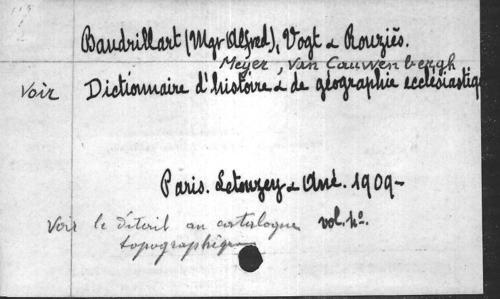 Baudrillart (Mgr Alfred), Vogt & Rouziès.
Meyer, Van Cauwenbergh
Voir Dictionnaire d'histoire & de géographie ecclésiastiq
Paris. Letouzey & Ané. 1909-
Voir le détail au catalogue vol. 4o.
topographique